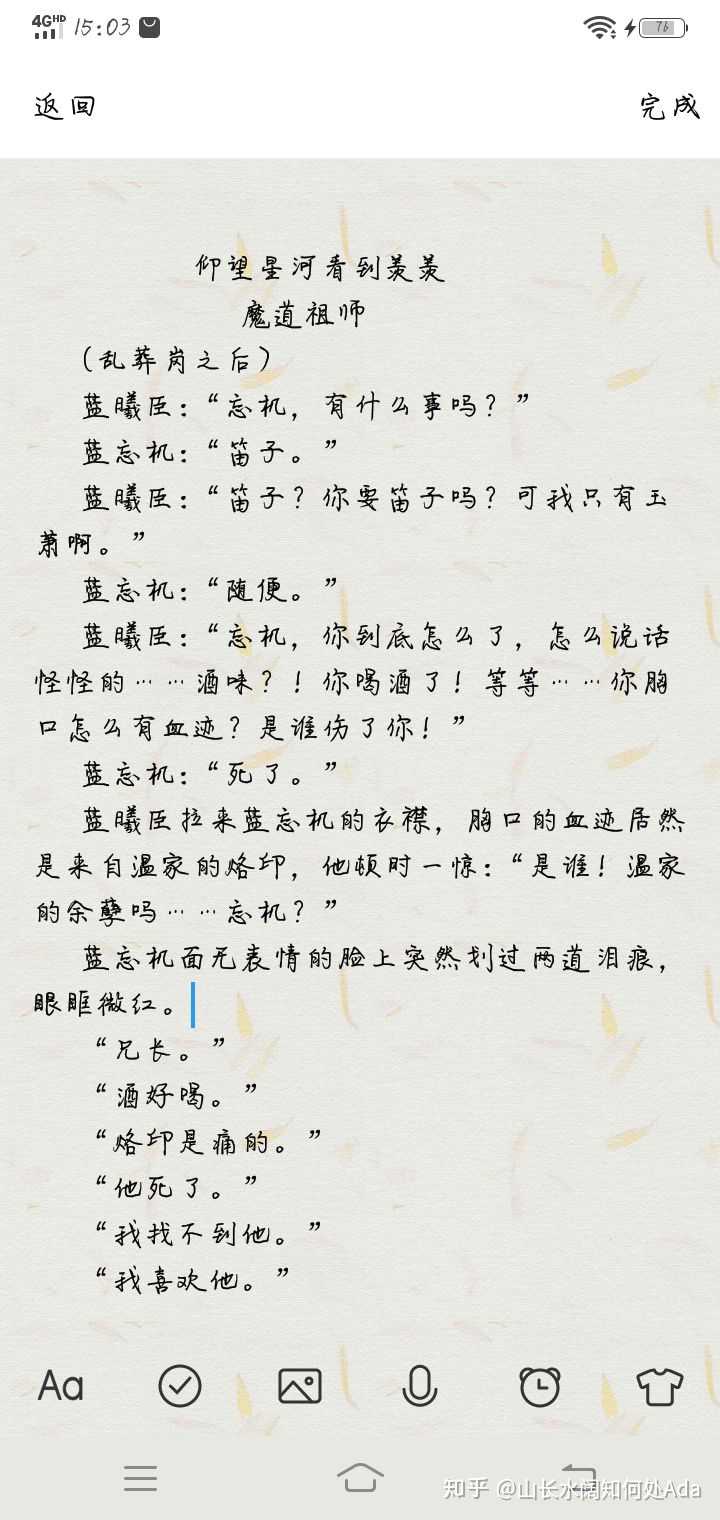 4G HD 15:03 76
返回 完成
仰望星河看到羡羡
魔道祖师
（乱葬岗之后）
蓝曦臣：“忘机，有什么事吗？”
蓝忘机：“笛子。”
蓝曦臣：“笛子？你要笛子吗？可我只有玉
萧啊。”
蓝忘机：“随便。”
蓝曦臣：“忘机，你到底怎么了，怎么说话
怪怪的……酒味？！你喝酒了！等等……你胸
口怎么有血迹？是谁伤了你！”
蓝忘机：“死了。”
蓝曦臣拉来蓝忘机的衣襟，胸口的血迹居然
是来自温家的烙印，他顿时一惊：“是谁！温家
的余孽吗……忘机？”
蓝忘机面无表情的脸上突然划过两道泪痕，
眼眶微红。
“兄长。”
“酒好喝。”
“烙印是痛的。”
“他死了。”
“我找不到他。”
“我喜欢他。”
Aa
知乎 @山长水阔知何处Ada